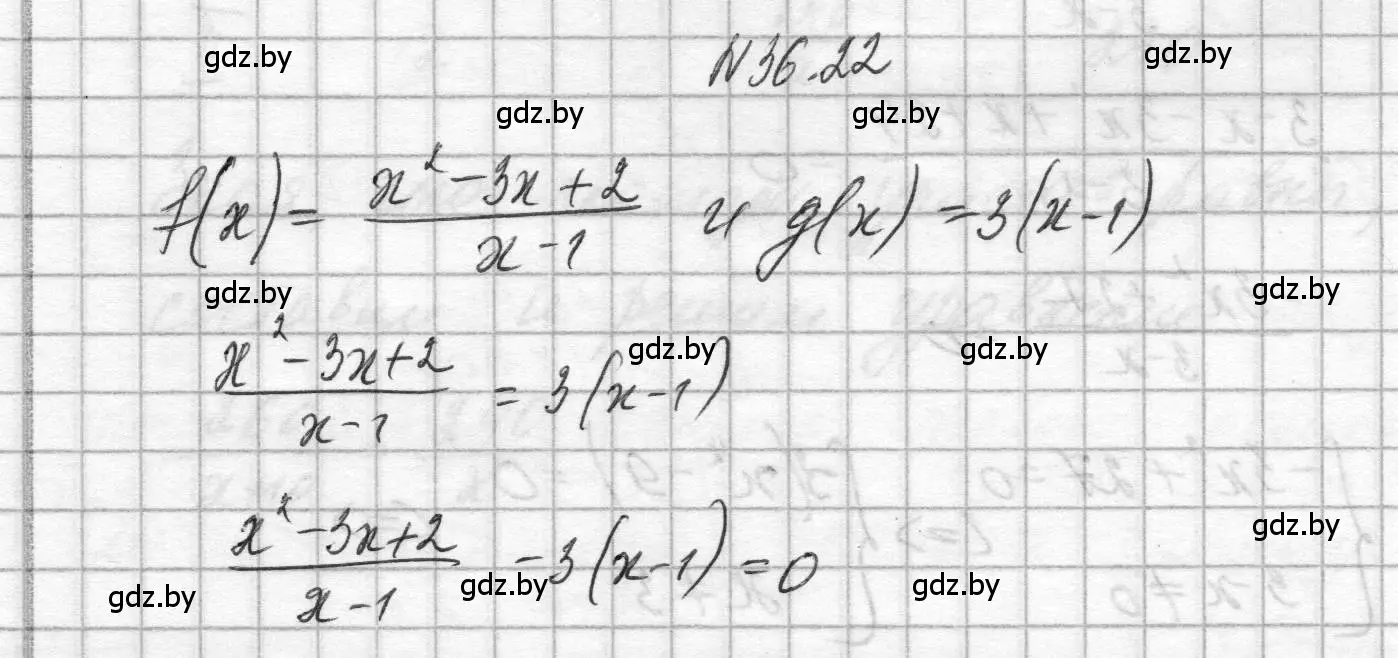 gdz.by N36.22 gdz.by
gdz.by gdz.by
f(x) = \frac{x^2-3x+2}{x-1} и g(x) = 3(x-1)
gdz.by gdz.by
gdz.by gdz.by
\frac{x^2-3x+2}{x-1} = 3(x-1)
gdz.by
\frac{x^2-3x+2}{x-1} -3(x-1) = 0
gdz.by gdz.by gdz.by